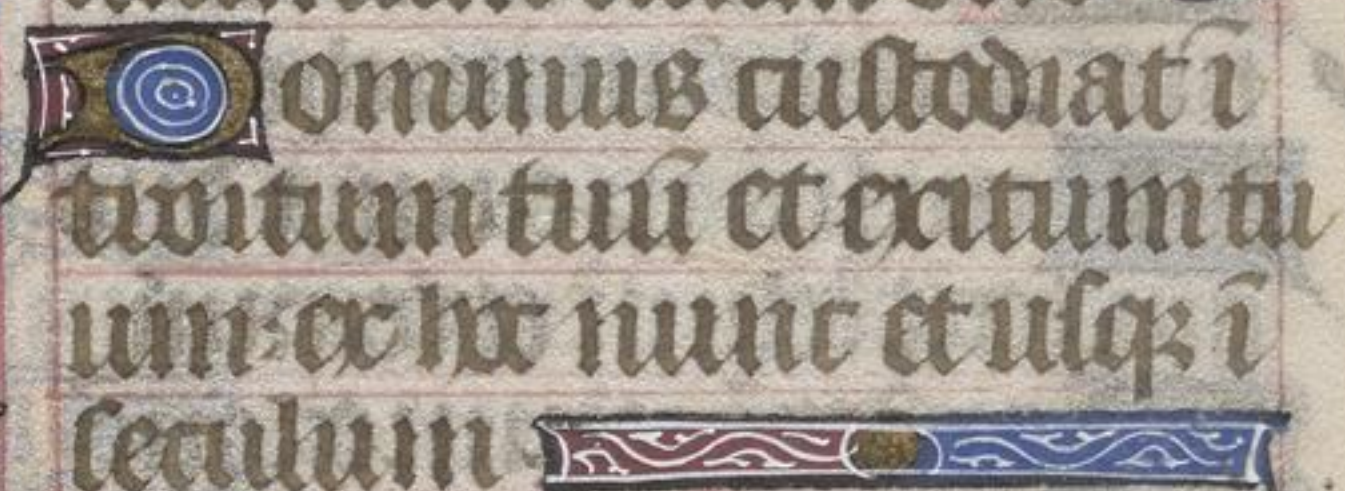 Dominus cuſtodiat ī
troitum tuū et exitum tu
um: ex hoc nunc et uſqꝫ ī
ſeculum